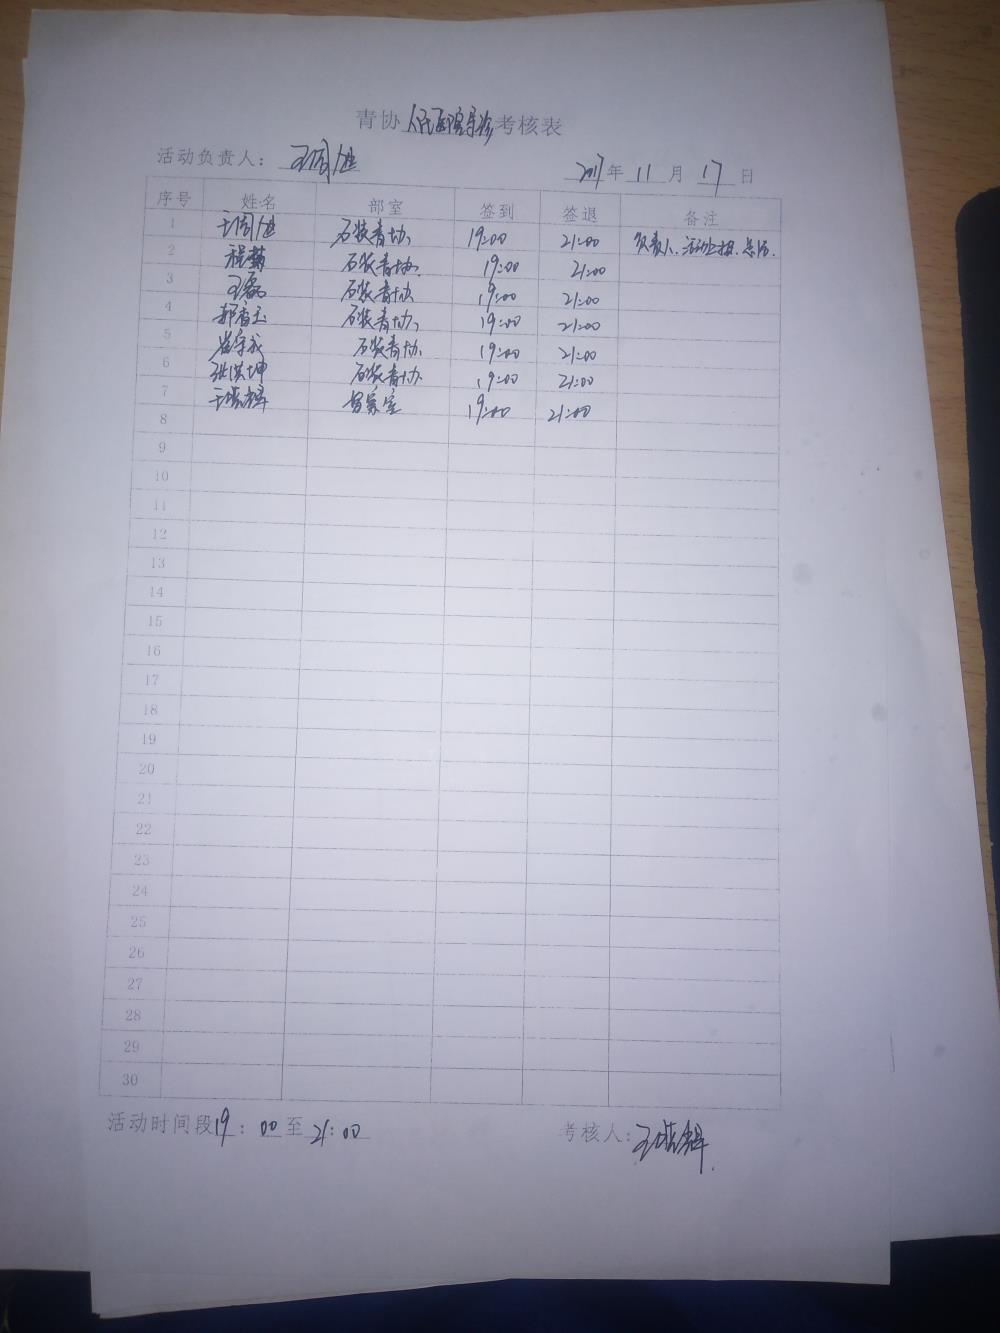 青协人民医院导诊考核表
活动负责人： 王周
2017年 11月 17日
序号 姓名 部室 签到 签退 备注
1 王周 石装青协 19:00 21:00 负责人、活动上报、总结.
2 程菊 石装青协 19:00 21:00
3 王磊 石装青协 19:00 21:00
4 郝香玉 石装青协 19:00 21:00
5 崔守成 石装青协 19:00 21:00
6 张洪坤 石装青协 19:00 21:00
7 王 19:00 21:00
8
9
10
11
12
13
14
15
16
17
18
19
20
21
22
23
24
25
26
27
28
29
30
活动时间段19：00至21:00 考核人：王